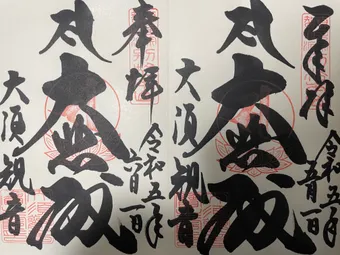 奉拝
令和五年
五月一日
大悲殿
大須観音
奉拝
令和五年
六月一日
大悲殿
大須観音